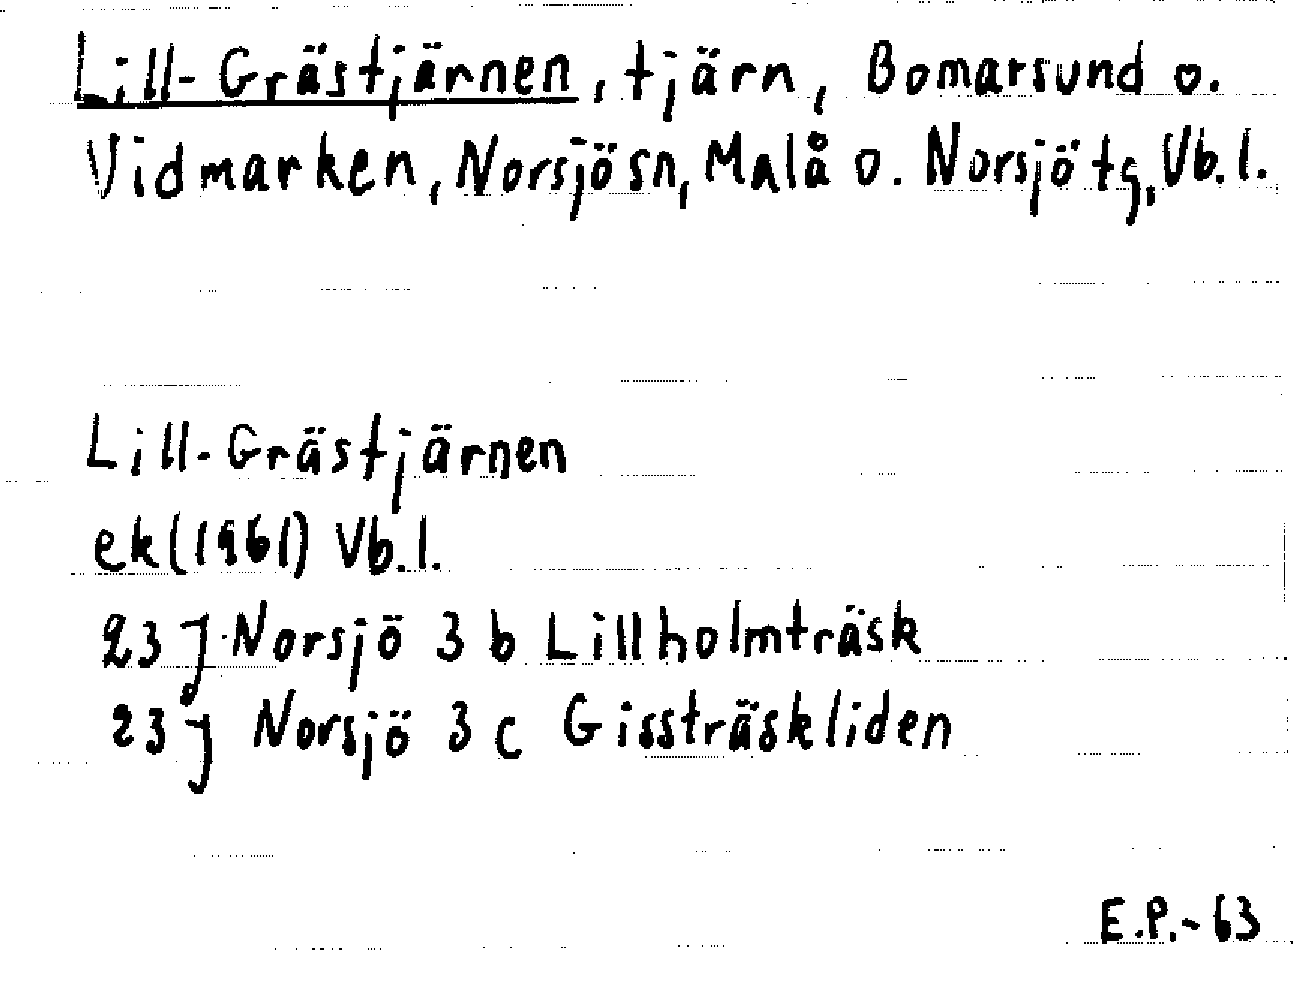 Lill-Grästjärnen, tjärn, Bomarsund o.
Vidmarken, Norsjö sn, Malå o. Norsjö tg, Vb.l.
Lill-Grästjärnen
ek (1961) Vb.l.
23 J Norsjö 3 b Lillholmträsk
23 J Norsjö 3 c Gissträskliden
E.P.-63